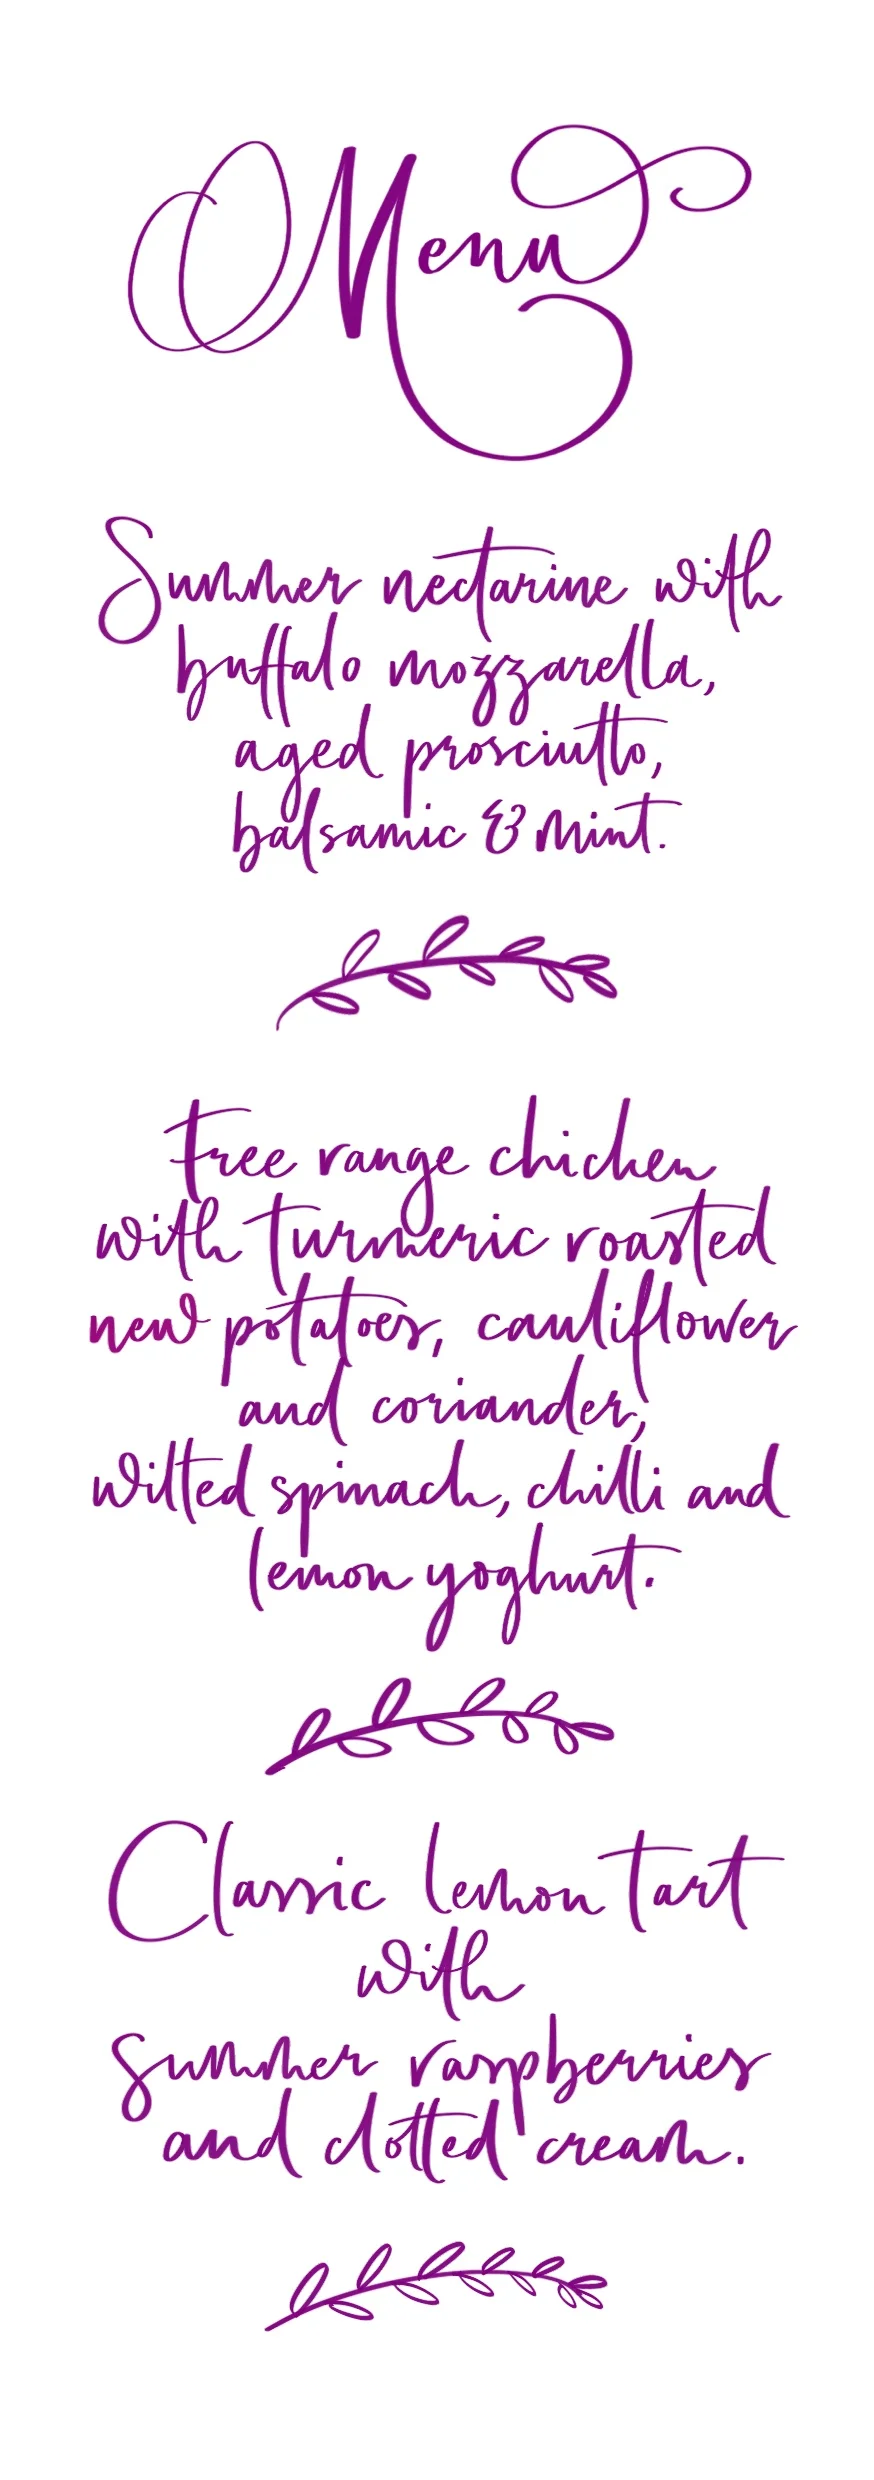 Menu
Summer nectarine with
buffalo mozzarella,
aged prosciutto,
balsamic & mint.
Free range chicken
with turmeric roasted
new potatoes, cauliflower
and coriander,
wilted spinach, chilli and
lemon yoghurt.
Classic lemon tart
with
summer raspberries
and clotted cream.